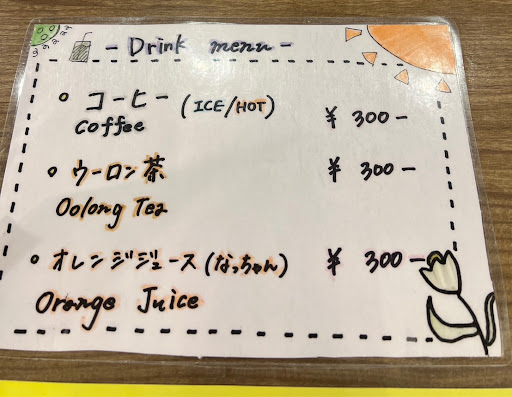 - Drink menu -
○ コーヒー (ICE/HOT) ¥ 300 -
Coffee
○ ウーロン茶 ¥ 300 -
Oolong Tea
○ オレンジジュース (なっちゃん) ¥ 300 -
Orange Juice